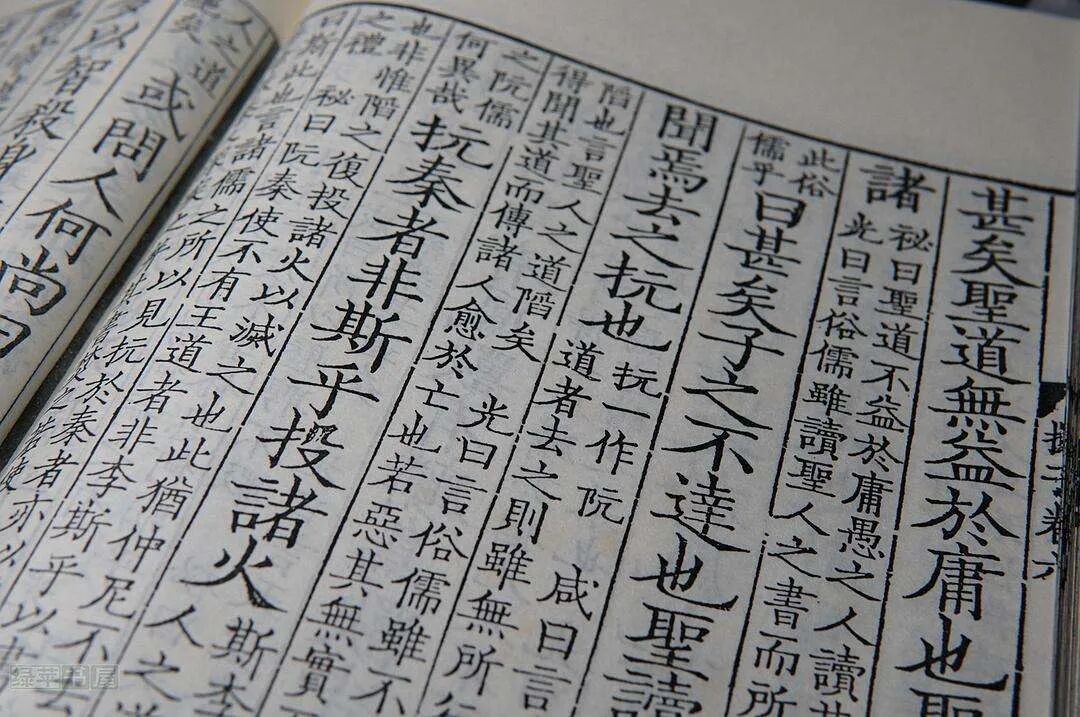 甚矣聖道無益於庸也聖
諸
祕曰聖道不益於庸愚之人讀其
光曰言俗儒雖讀聖人之書而所
此俗
儒乎
曰甚矣子之不達也聖讀
聞焉去之抏也
抏一作阮 咸曰言
道者去之則雖無所
陷也言聖人之道陷矣 光曰言俗儒雖不
得聞其道而傳諸人愈於亡也若惡其無實
之阮儒
何異哉
抏秦者非斯乎投諸火
斯李
人之
也非惟陷之復投諸火以滅之也此猶仲尼不
之禮 祕曰阮秦使不有王道者非李斯乎以
曰斯此也言諸儒之所以見抏於秦者亦以
人之道
或問人何尚曰
以智殺身